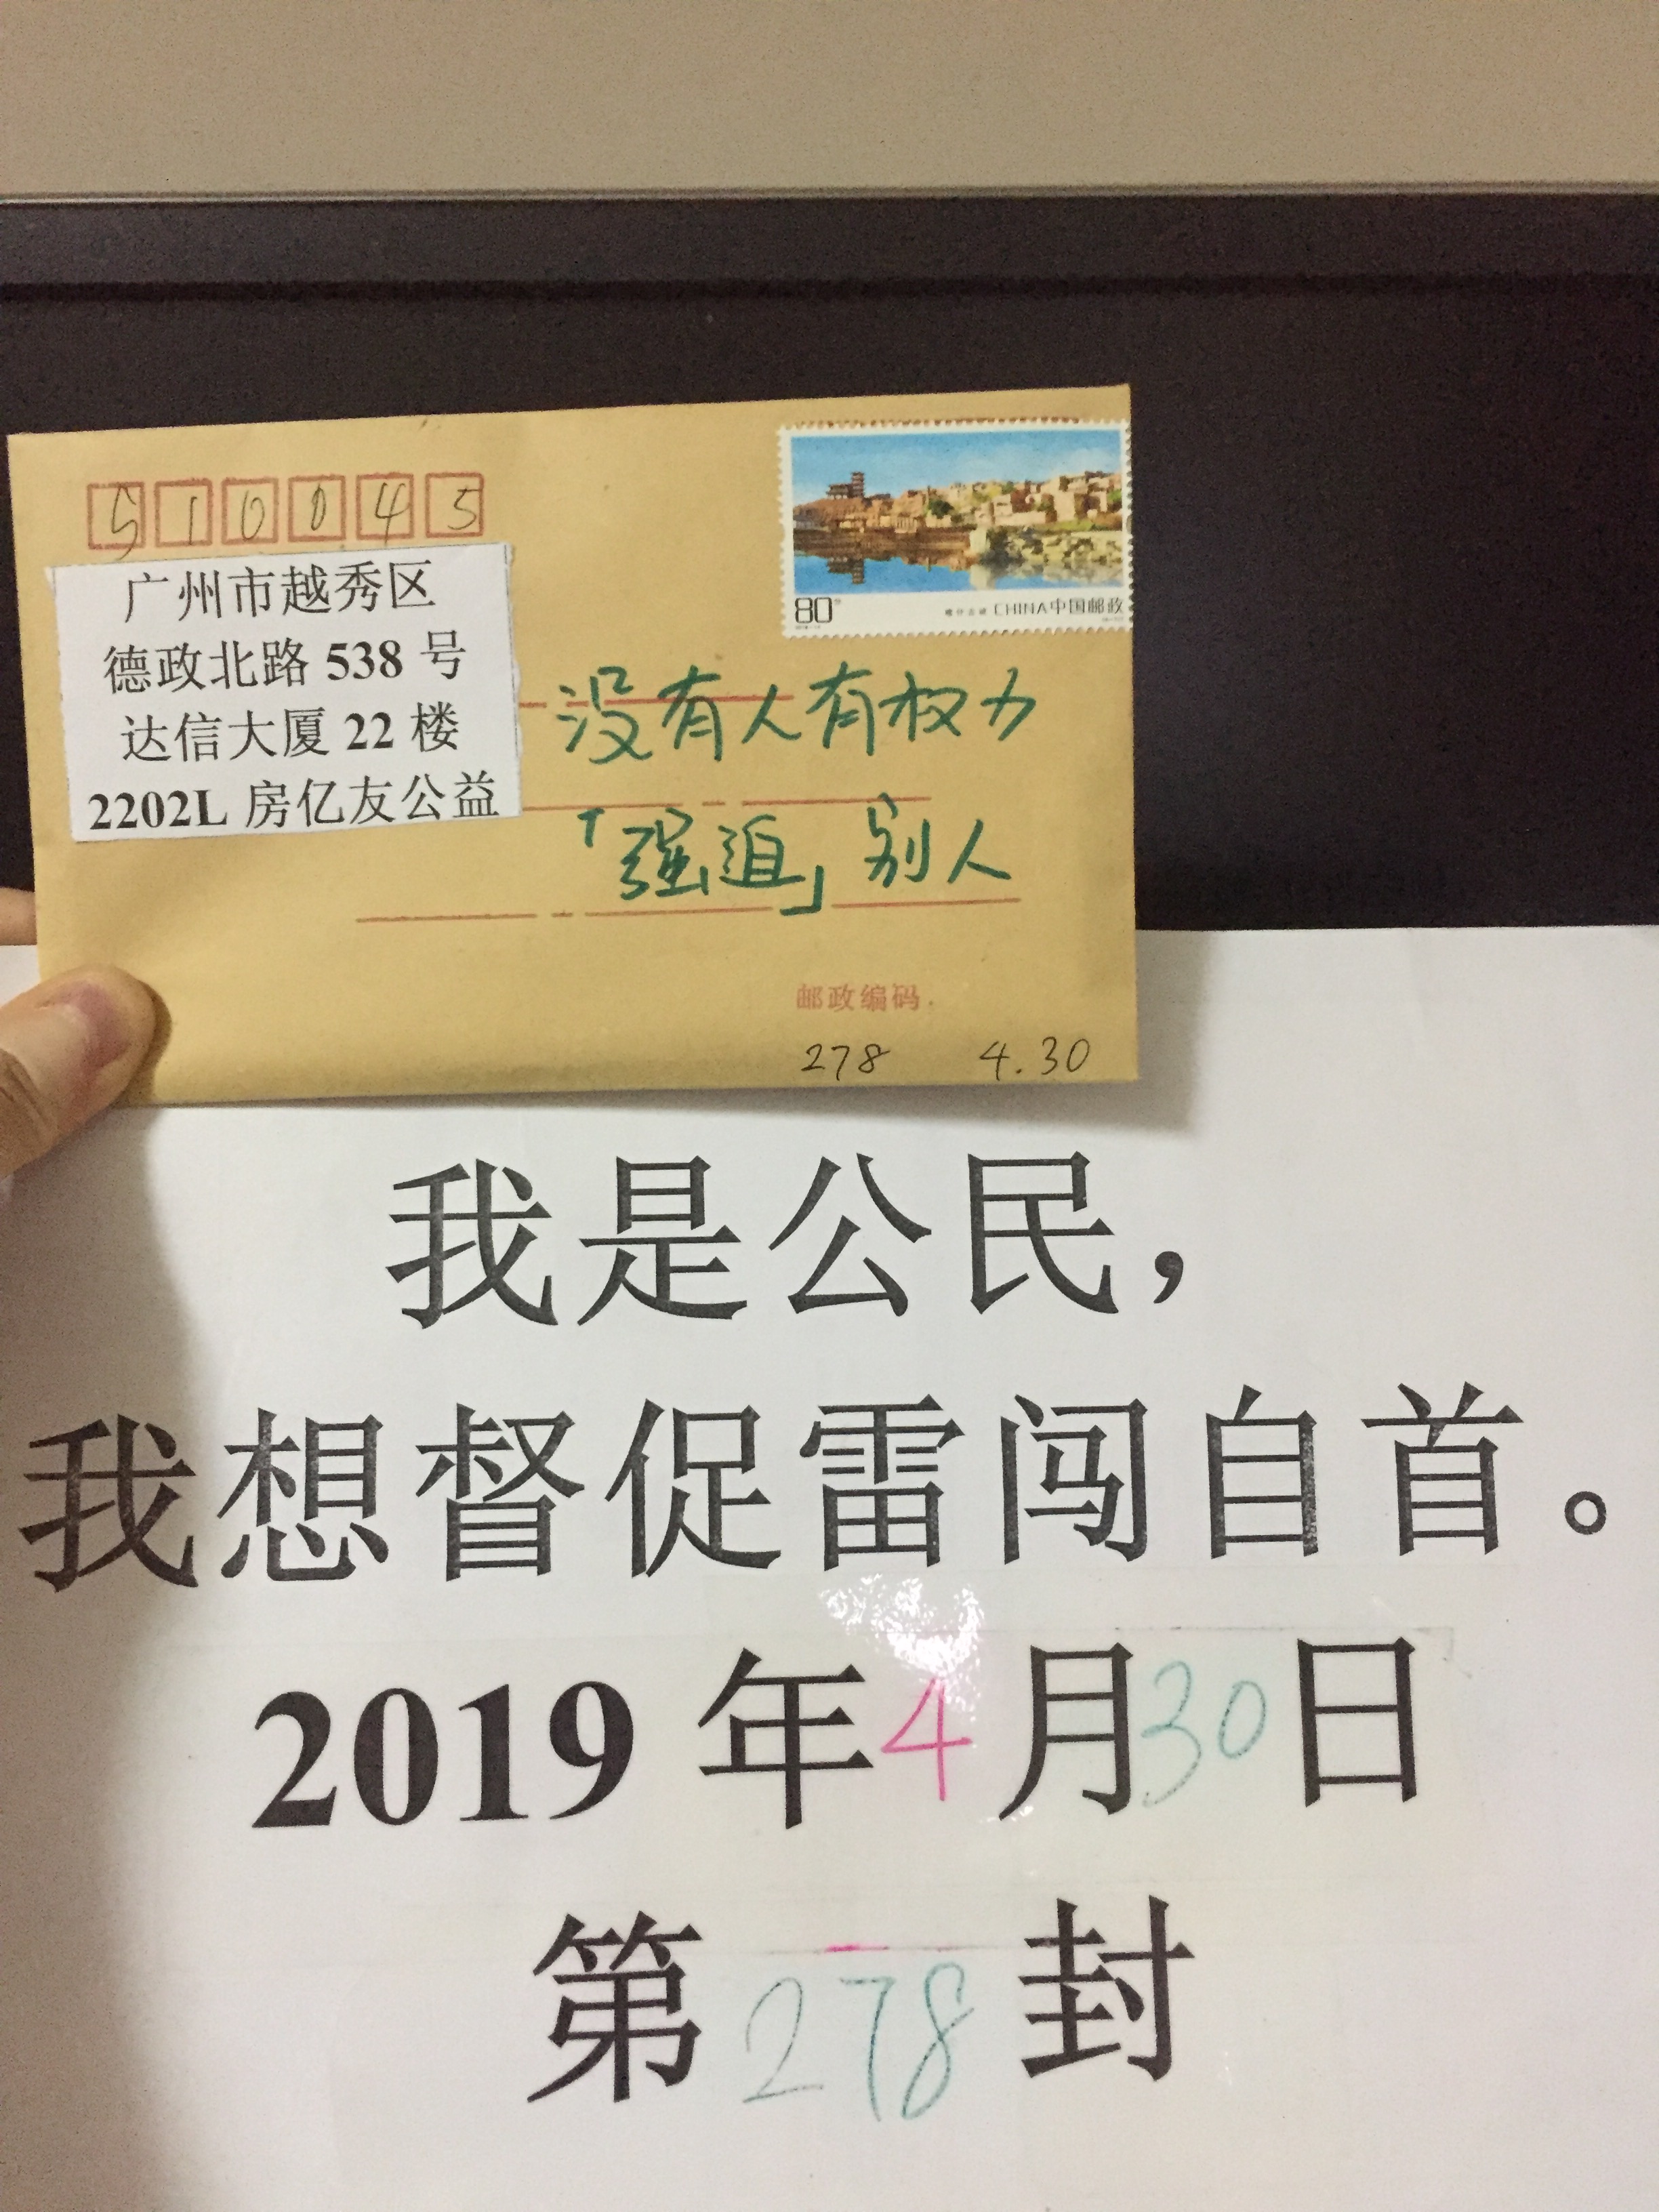 510045
广州市越秀区
德政北路 538 号
达信大厦 22 楼
2202L 房亿友公益
80
CHINA中国邮政
没有人有权力
「强迫」别人
邮政编码
278 4.30
我是公民，
我想督促雷闯自首。
2019 年4月30日
第278封